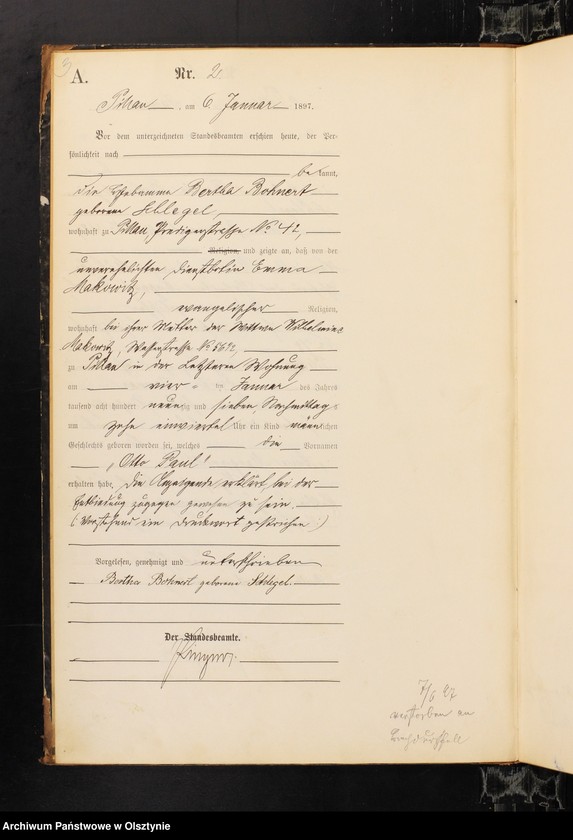 3
A.
Nr. 2
Pillau, am 6 Januar 1897.
Vor dem unterzeichneten Standesbeamten erschien heute, der Per-
sönlichkeit nach
bekannt,
die Hebamme Bertha Bohnert
geborene Schlegel,
wohnhaft zu Pillau, Predigerstrasse No 41,
Religion, und zeigte an, daß von der
unverehelichten Dienstbotin Emma
Makowitz,
evangelischer Religion,
wohnhaft bei ihrer Mutter der Wittwe Wilhelmine
Makowitz,
zu Pillau in der Letzteren Wohnung
am vier ten Januar des Jahres
tausend acht hundert neunzig und sieben Nachmittags
um zehn einviertel Uhr ein Kind männlichen
Geschlechts geboren worden sei, welches die Vornamen
„Otto Paul“
erhalten habe. Die Anzeigende erklärt bei der
Entbindung zugegen gewesen zu sein.
(Vorstehend ein Druckwort gestrichen.)
Vorgelesen, genehmigt und unterschrieben
Bertha Bohnert geborene Schlegel.
Der Standesbeamte.
7/6 97
verstorben an
Brechdurchfall
Archiwum Państwowe w Olsztynie